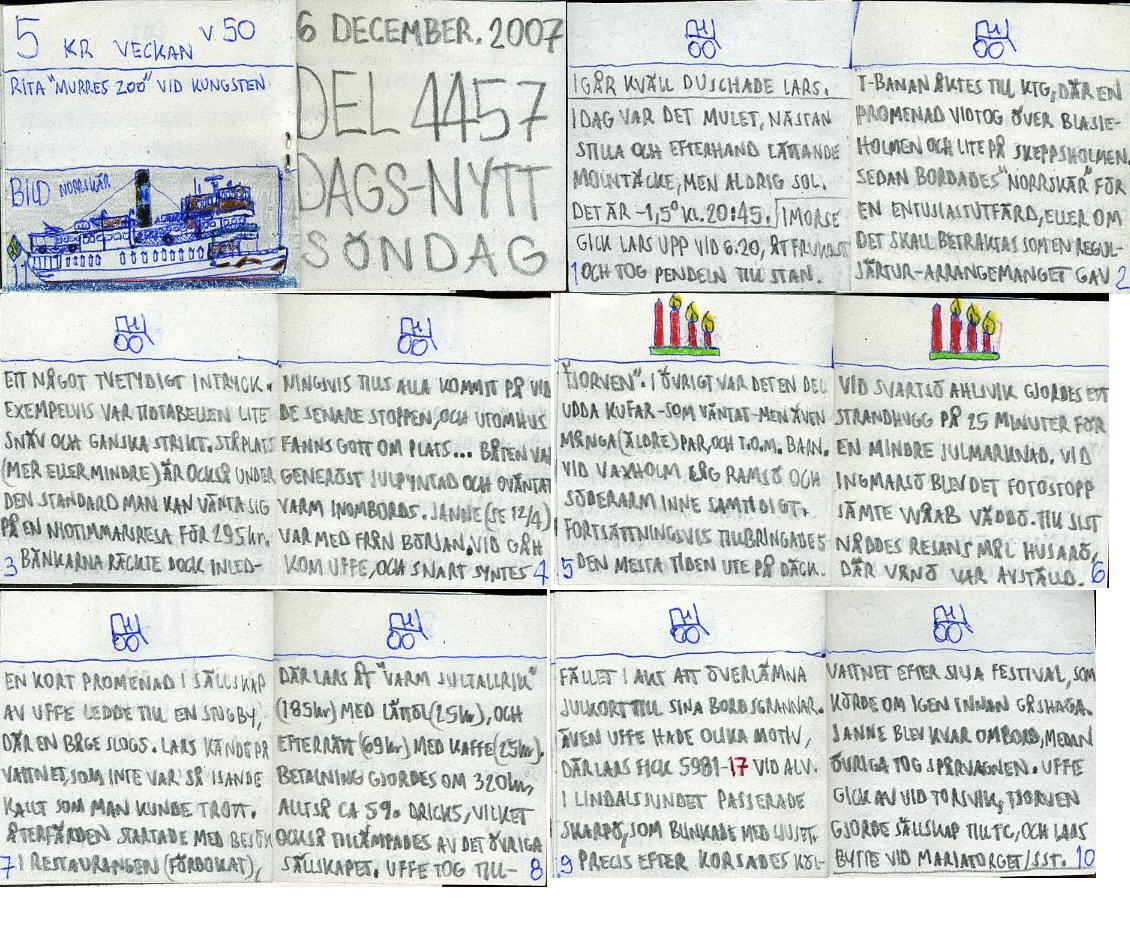 5 KR VECKAN V 50
RITA "MURRES ZOO" VID KUNGSTEN
BILD NORRSKÄR
6 DECEMBER. 2007
DEL 4457
DAGS-NYTT
SÖNDAG
IGÅR KVÄLL DUSCHADE LARS.
IDAG VAR DET MULET, NÄSTAN
STILLA OCH EFTERHAND LÄTTANDE
MOLNTÄCKE, MEN ALDRIG SOL.
DET ÄR -1,5° KL. 20:45. IMORSE
GICK LARS UPP VID 6.20, ÅT FRUKOST
1 OCH TOG PENDELN TILL STAN.
T-BANAN ÅKTES TILL KTG, DÄR EN
PROMENAD VIDTOG ÖVER BLASIE-
HOLMEN OCH LITE PÅ SKEPPSHOLMEN.
SEDAN BORDADES "NORRSKÄR" FÖR
EN ENTUSIASTUTFÄRD, ELLER OM
DET SKALL BETRAKTAS SOM EN REGUL-
JÄRTUR-ARRANGEMANGET GAV 2
ETT NÅGOT TVETYDIGT INTRYCK.
EXEMPELVIS VAR TIDTABELLEN LITE
SNÄV OCH GANSKA STRIKT. STÅPLATS
(MER ELLER MINDRE) ÄR OCKSÅ UNDER
DEN STANDARD MAN KAN VÄNTA SIG
PÅ EN NIOTIMMARSRESA FÖR 295kr.
3 BÄNKARNA RÄCKTE DOCK INLED-
NINGSVIS TILLS ALLA KOMMIT PÅ VID
DE SENARE STOPPEN, OCH UTOMHUS
FANNS GOTT OM PLATS... BÅTEN VAR
GENERÖST JULPYNTAD OCH OVÄNTAT
VARM INOMBORDS. JANNE (SE 12/4)
VAR MED FRÅN BÖRJAN. VID GÅH
KOM UFFE, OCH SNART SYNTES 4
"TJORVEN". I ÖVRIGT VAR DET EN DEL
UDDA KUFAR-SOM VÄNTAT-MEN ÄVEN
MÅNGA (ÄLDRE) PAR, OCH T.O.M. BARN.
VID VAXHOLM LÅG RAMSÖ OCH
SÖDERARM INNE SAMTIDIGT.
FORTSÄTTNINGSVIS TILLBRINGADES
5 DEN MESTA TIDEN UTE PÅ DÄCK.
VID SVARTSÖ AHLSVIK GJORDES ETT
STRANDHUGG PÅ 25 MINUTER FÖR
EN MINDRE JULMARKNAD. VID
INGMARSÖ BLEV DET FOTOSTOPP
JÄMTE WÅAB VÄDDÖ. TILL SIST
NÅDDES RESANS MÅL HUSARÖ,
DÄR VÅNÖ VAR AVSTÄLLD. 6
EN KORT PROMENAD I SÄLLSKAP
AV UFFE LEDDE TILL EN STUGBY,
DÄR EN BÅGE SLOGS. LARS KÄNDE PÅ
VATTNET, SOM INTE VAR SÅ ISANDE
KALLT SOM MAN KUNDE TROTT.
ÅTERFÄRDEN STARTADE MED BESÖK
7 I RESTAURANGEN (FÖRBOKAT),
DÄR LARS ÅT "VARM JULTALLRIK"
(185kr) MED LÄTTÖL (25kr), OCH
EFTERRÄTT (69kr) MED KAFFE (25kr).
BETALNING GJORDES OM 320kr,
ALLTSÅ CA 5%. DRICKS, VILKET
OCKSÅ TILLÄMPADES AV DET ÖVRIGA
SÄLLSKAPET. UFFE TOG TILL- 8
FÄLLET I AKT ATT ÖVERLÄMNA
JULKORT TILL SINA BORDSGRANNAR.
ÄVEN UFFE HADE OLIKA MOTIV,
DÄR LARS FICK 5981-17 VID ALV.
I LINDALSSUNDET PASSERADE
SKARPÖ, SOM BLINKADE MED LJUSET.
9 PRECIS EFTER KORSADES KÖL-
VATTNET EFTER SILJA FESTIVAL, SOM
KÖRDE OM IGEN INNAN GÅSHAGA.
JANNE BLEV KVAR OMBORD, MEDAN
ÖVRIGA TOG SPÅRVAGNEN. UFFE
GICK AV VID TORSVIK, TJORVEN
GJORDE SÄLLSKAP TILL TC, OCH LARS
BYTTE VID MARIATORGET/SST. 10